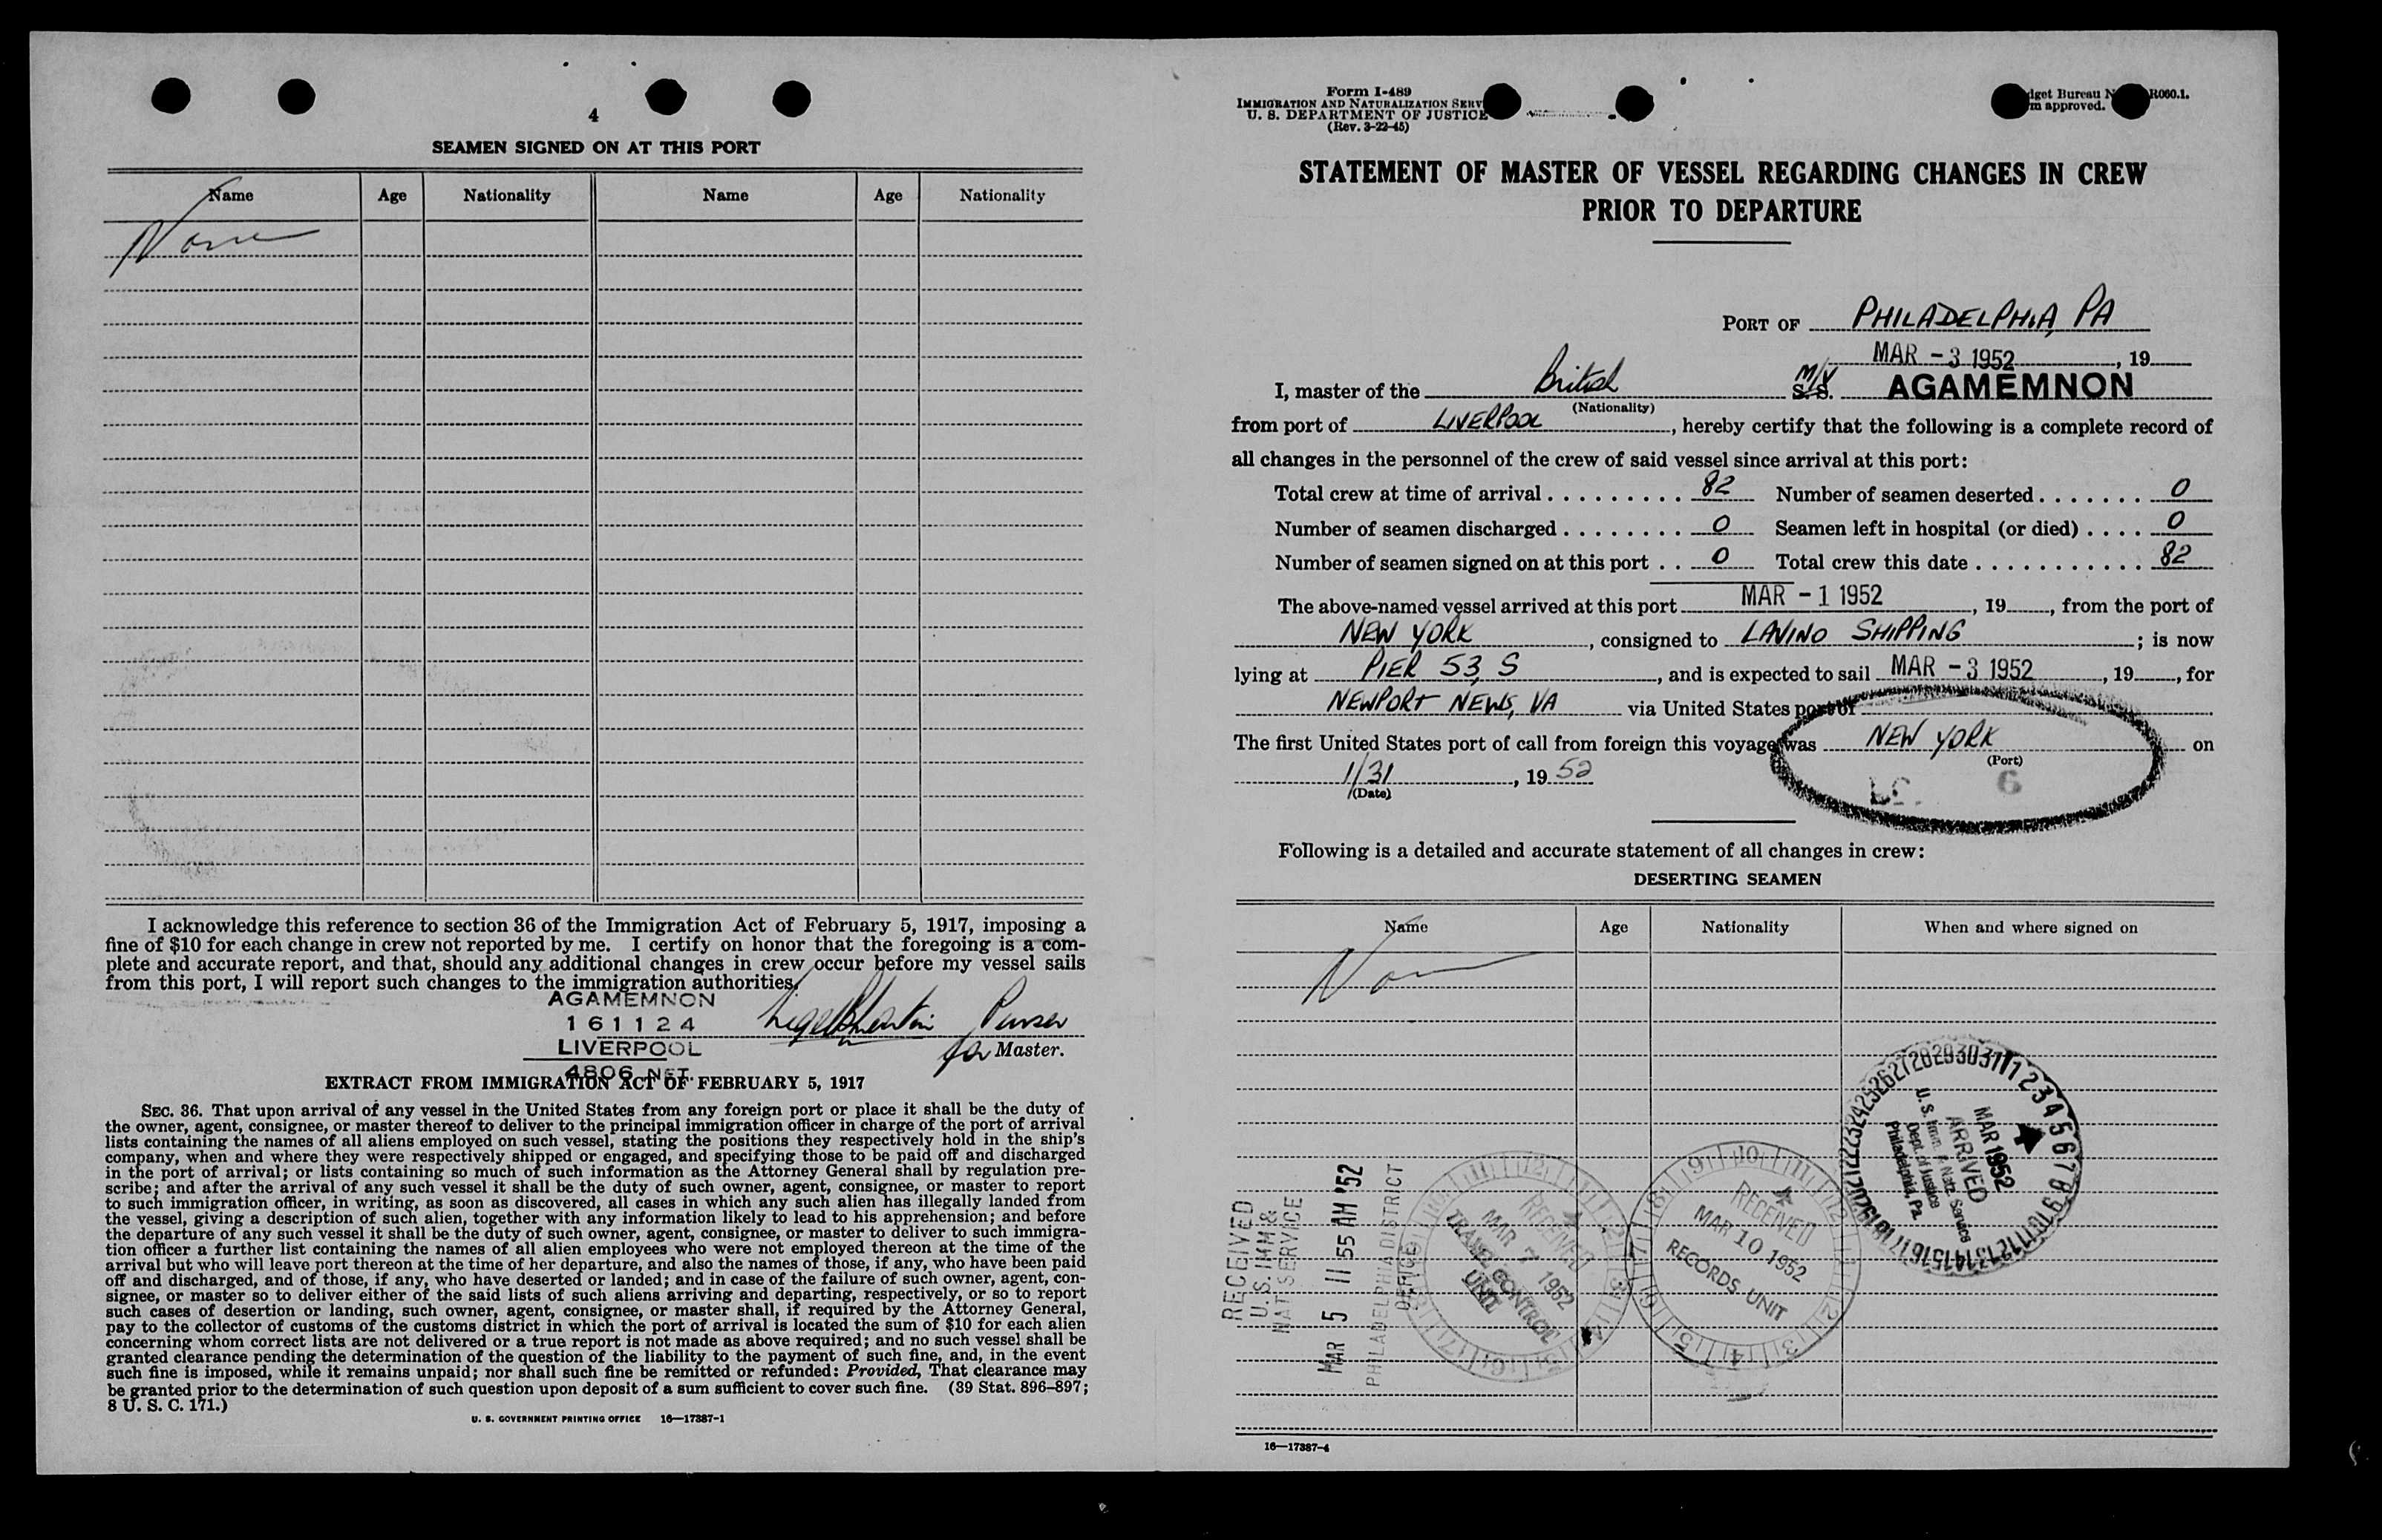 4
SEAMEN SIGNED ON AT THIS PORT
Name Age Nationality Name Age Nationality
None
I acknowledge this reference to section 36 of the Immigration Act of February 5, 1917, imposing a
fine of $10 for each change in crew not reported by me. I certify on honor that the foregoing is a com-
plete and accurate report, and that, should any additional changes in crew occur before my vessel sails
from this port, I will report such changes to the immigration authorities.
AGAMEMNON
161124 Purser
LIVERPOOL for Master.
4806 NET.
EXTRACT FROM IMMIGRATION ACT OF FEBRUARY 5, 1917
SEC. 36. That upon arrival of any vessel in the United States from any foreign port or place it shall be the duty of
the owner, agent, consignee, or master thereof to deliver to the principal immigration officer in charge of the port of arrival
lists containing the names of all aliens employed on such vessel, stating the positions they respectively hold in the ship's
company, when and where they were respectively shipped or engaged, and specifying those to be paid off and discharged
in the port of arrival; or lists containing so much of such information as the Attorney General shall by regulation pre-
scribe; and after the arrival of any such vessel it shall be the duty of such owner, agent, consignee, or master to report
to such immigration officer, in writing, as soon as discovered, all cases in which any such alien has illegally landed from
the vessel, giving a description of such alien, together with any information likely to lead to his apprehension; and before
the departure of any such vessel it shall be the duty of such owner, agent, consignee, or master to deliver to such immigra-
tion officer a further list containing the names of all alien employees who were not employed thereon at the time of the
arrival but who will leave port thereon at the time of her departure, and also the names of those, if any, who have been paid
off and discharged, and of those, if any, who have deserted or landed; and in case of the failure of such owner, agent, con-
signee, or master so to deliver either of the said lists of such aliens arriving and departing, respectively, or so to report
such cases of desertion or landing, such owner, agent, consignee, or master shall, if required by the Attorney General,
pay to the collector of customs of the customs district in which the port of arrival is located the sum of $10 for each alien
concerning whom correct lists are not delivered or a true report is not made as above required; and no such vessel shall be
granted clearance pending the determination of the question of the liability to the payment of such fine, and, in the event
such fine is imposed, while it remains unpaid; nor shall such fine be remitted or refunded: Provided, That clearance may
be granted prior to the determination of such question upon deposit of a sum sufficient to cover such fine. (39 Stat. 896–897;
8 U. S. C. 171.)
U. S. GOVERNMENT PRINTING OFFICE 16—17387-1
Form I-489
IMMIGRATION AND NATURALIZATION SERV
U. S. DEPARTMENT OF JUSTICE
(Rev. 3-22-45)
dget Bureau N R060.1.
m approved.
STATEMENT OF MASTER OF VESSEL REGARDING CHANGES IN CREW
PRIOR TO DEPARTURE
PORT OF PHILADELPHIA, PA
MAR - 3 1952, 19
I, master of the British M/V S.S. AGAMEMNON
(Nationality)
from port of LIVERPOOL, hereby certify that the following is a complete record of
all changes in the personnel of the crew of said vessel since arrival at this port:
Total crew at time of arrival . . . . . . . . . 82 Number of seamen deserted . . . . . . . 0
Number of seamen discharged . . . . . . . . 0 Seamen left in hospital (or died) . . . . 0
Number of seamen signed on at this port . . 0 Total crew this date . . . . . . . . . . . . 82
The above-named vessel arrived at this port MAR - 1 1952, 19, from the port of
NEW YORK, consigned to LAVINO SHIPPING; is now
lying at PIER 53, S, and is expected to sail MAR - 3 1952, 19, for
NEWPORT NEWS, VA via United States port of
The first United States port of call from foreign this voyage was NEW YORK on
(Port)
1/31, 1952
(Date)
6
Following is a detailed and accurate statement of all changes in crew:
DESERTING SEAMEN
Name Age Nationality When and where signed on
None
RECEIVED
U.S. IMM. &
NAT. SERVICE
MAR 5 11 55 AM '52
PHILADELPHIA DISTRICT
OFFICE
RECEIVED
MAR 7 1952
TRAVEL CONTROL
UNIT
RECEIVED
MAR 10 1952
RECORDS UNIT
MAR 1952
ARRIVED
U. S. Imm. & Natz. Service
Dept. of Justice
Philadelphia, Pa.
16—17387-4